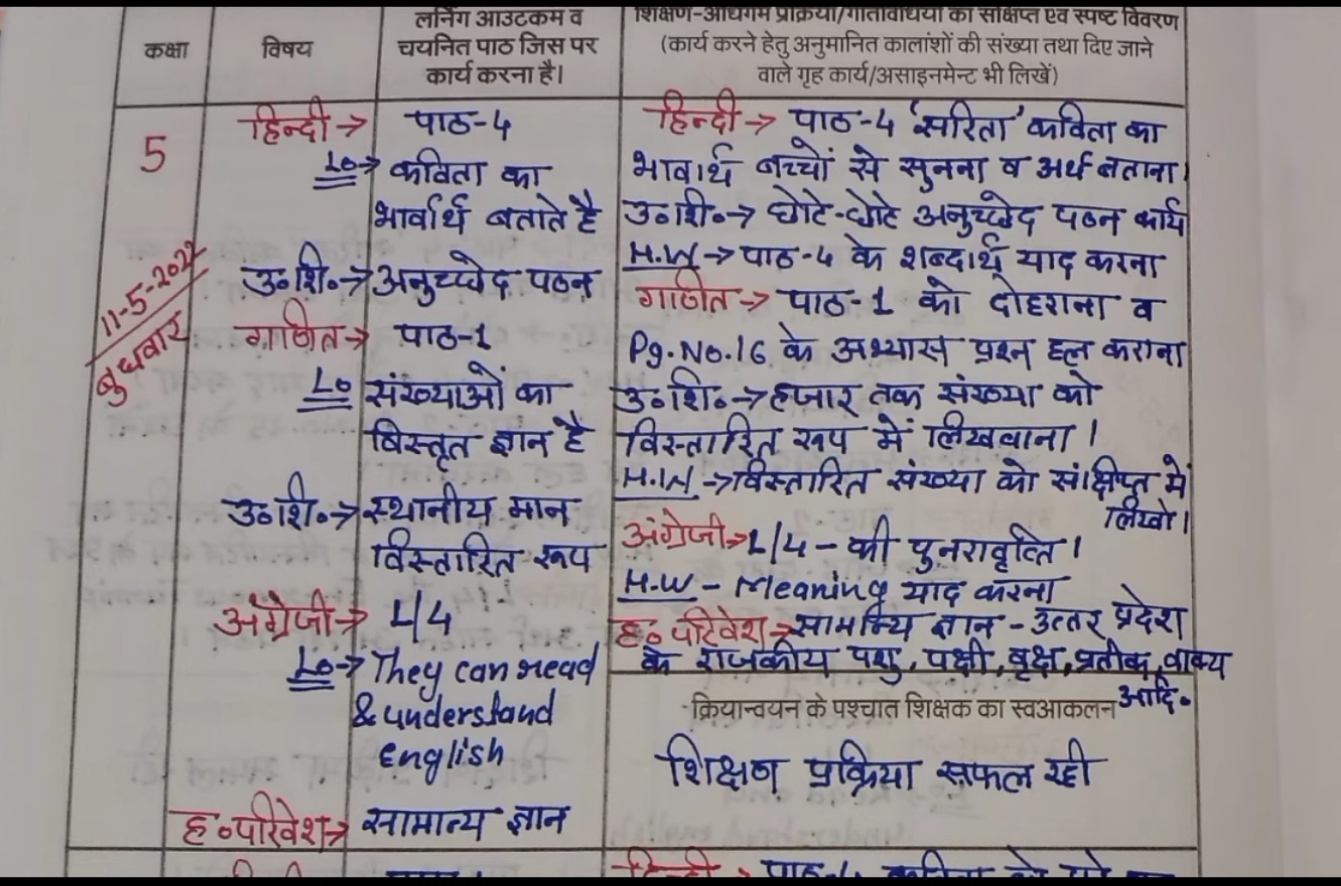 कक्षा
विषय
लर्निंग आउटकम व
चयनित पाठ जिस पर
कार्य करना है।
शिक्षण-अधिगम प्रक्रिया/गतिविधियों का संक्षिप्त एवं स्पष्ट विवरण
(कार्य करने हेतु अनुमानित कालांशों की संख्या तथा दिए जाने
वाले गृह कार्य/असाइनमेन्ट भी लिखें)
5
11-5-2022
बुधवार
हिन्दी → पाठ-4
LO→ कविता का
भावार्थ बताते है
उ०शि०→ अनुच्छेद पठन
गणित→ पाठ-1
LO संख्याओं का
विस्तृत ज्ञान है
उ०शि०→ स्थानीय मान
विस्तारित रूप
अंग्रेजी→ L/4
LO→ They can read
& understand
english
ह०परिवेश→ सामान्य ज्ञान
हिन्दी → पाठ-4 'सरिता' कविता का
भावार्थ बच्चों से सुनना व अर्थ बताना।
उ०शि०→ छोटे-छोटे अनुच्छेद पठन कार्य
H.W→ पाठ-4 के शब्दार्थ याद करना
गणित→ पाठ-1 को दोहराना व
Pg.No.16 के अभ्यास प्रश्न हल कराना
उ०शि०→ हजार तक संख्या को
विस्तारित रूप में लिखवाना।
H.W→ विस्तारित संख्या को संक्षिप्त में
लिखो।
अंग्रेजी→ L/4 - की पुनरावृत्ति।
H.W - Meaning याद करना
ह० परिवेश→ सामान्य ज्ञान - उत्तर प्रदेश
के राजकीय पशु, पक्षी, वृक्ष, प्रतीक, वाक्य
आदि०
क्रियान्वयन के पश्चात शिक्षक का स्वआकलन
शिक्षण प्रक्रिया सफल रही